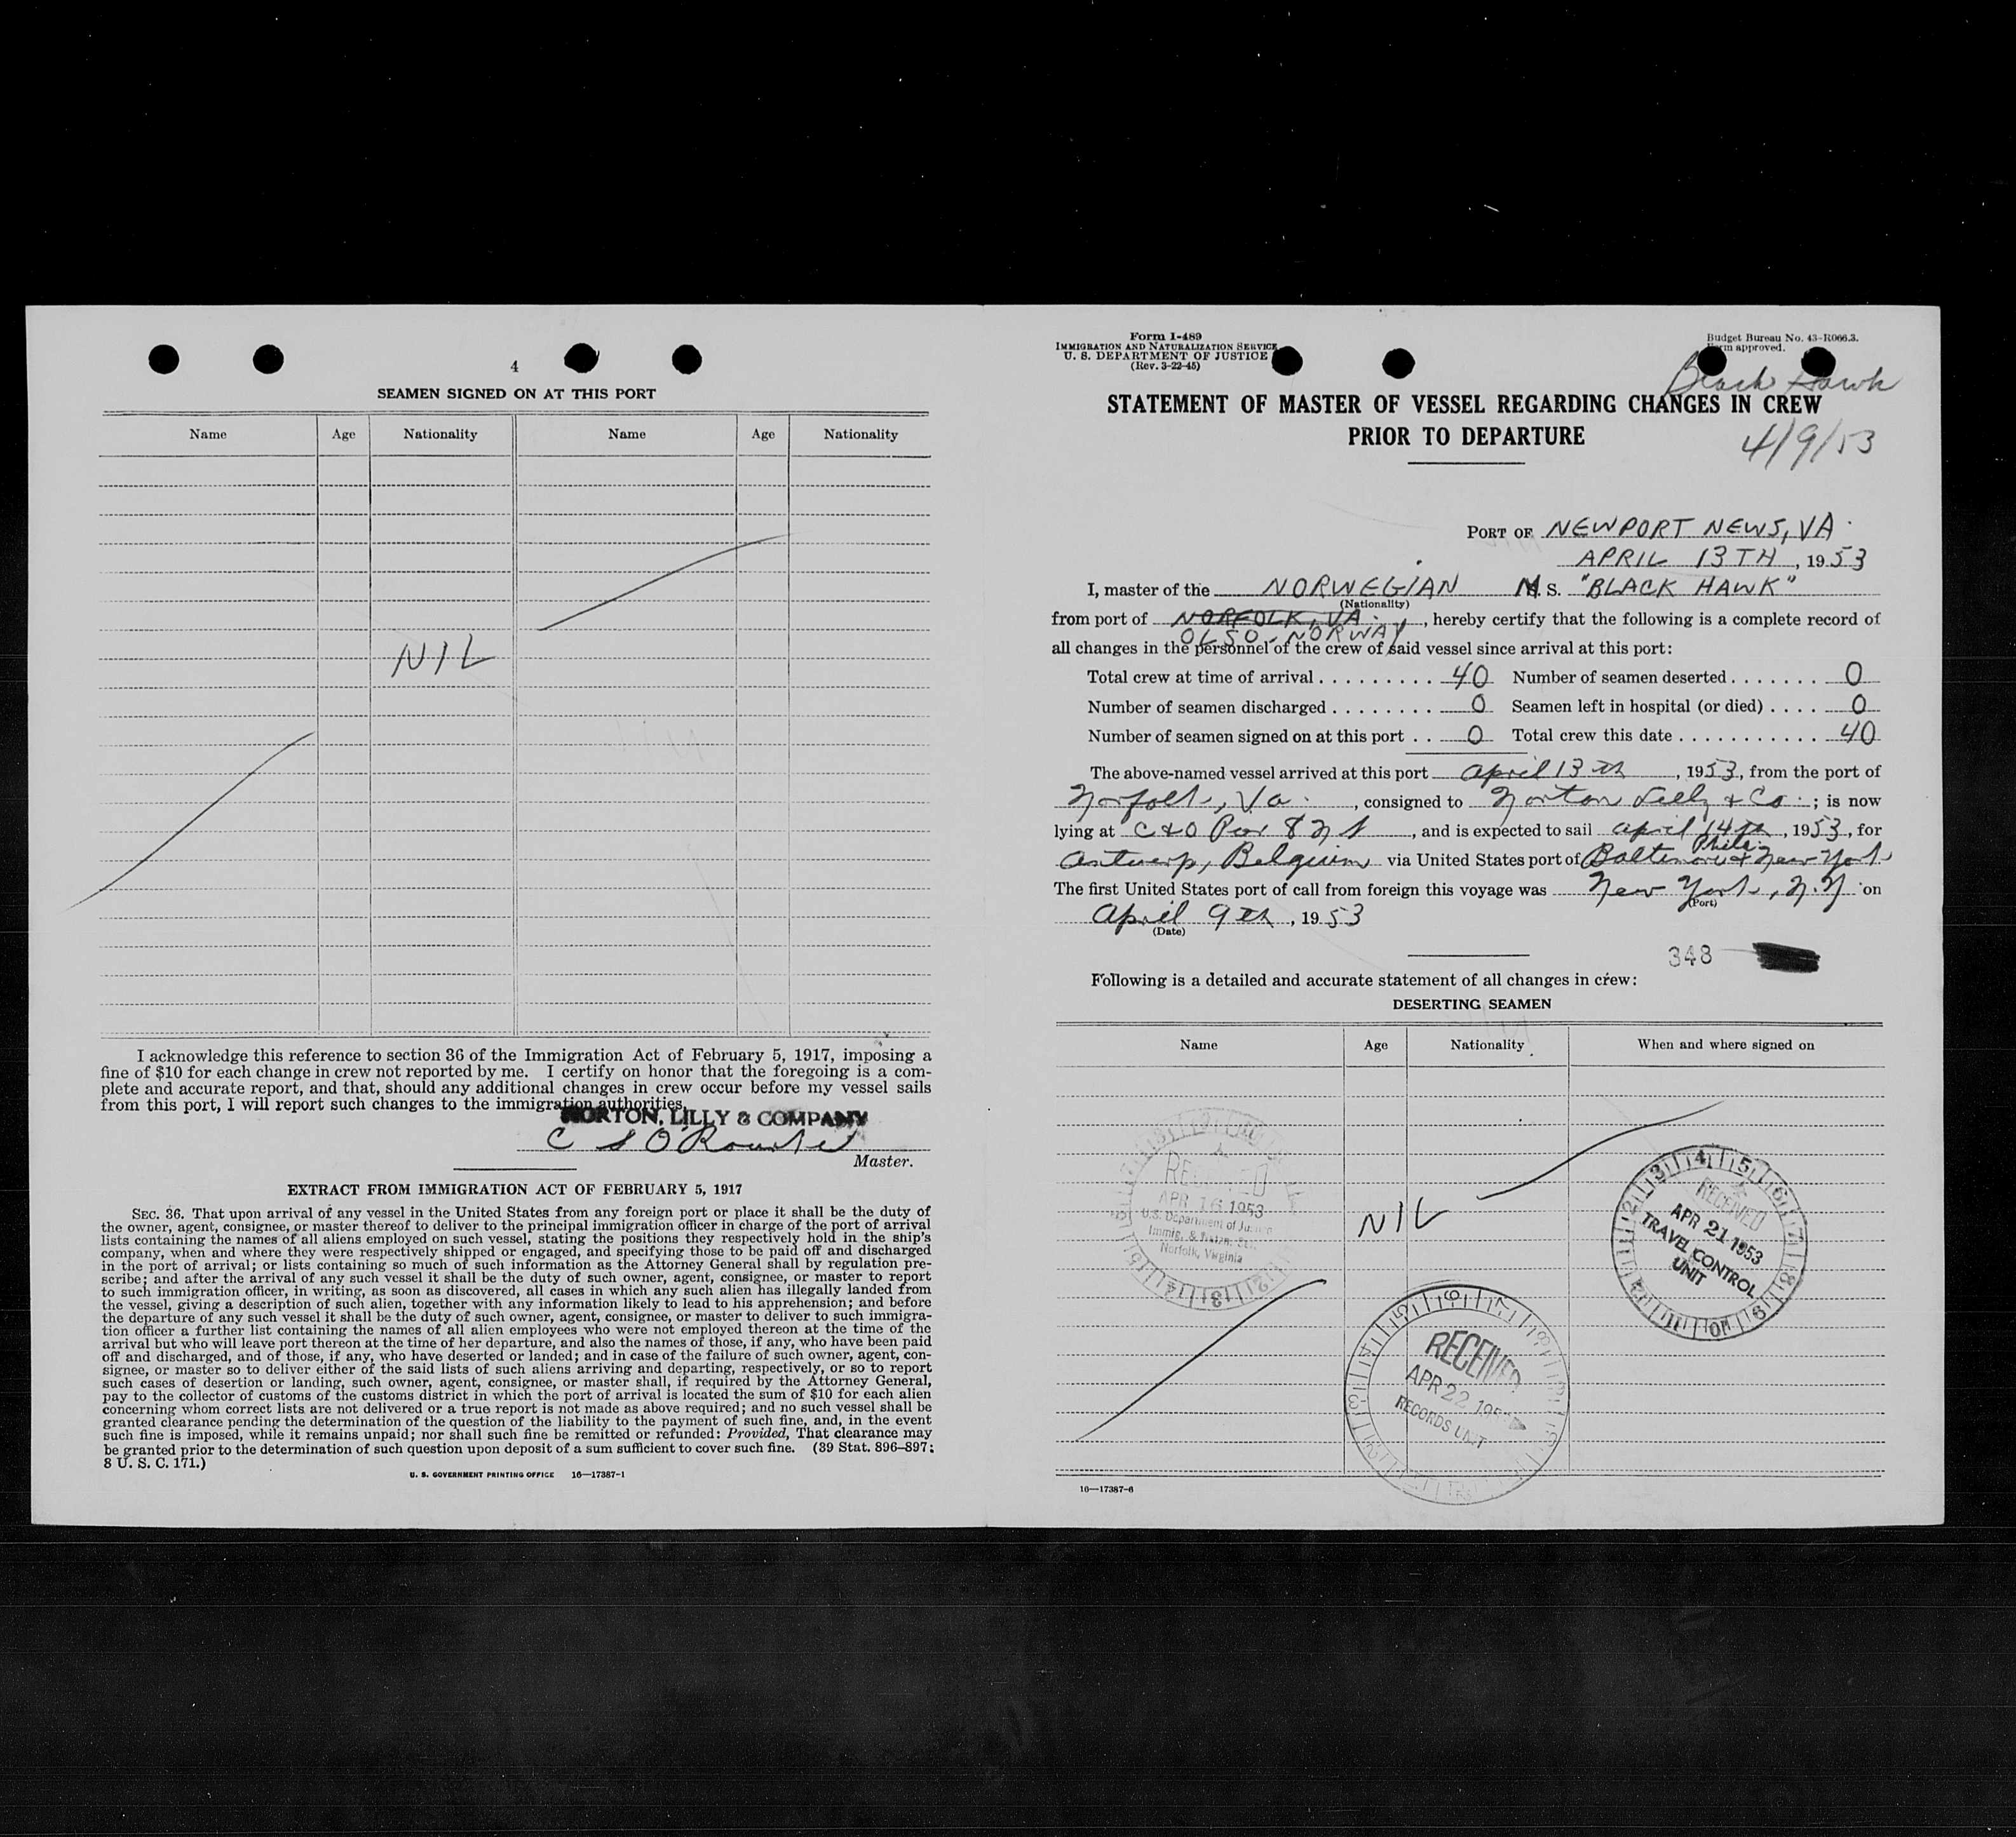 4
SEAMEN SIGNED ON AT THIS PORT
Name Age Nationality Name Age Nationality
NIL
I acknowledge this reference to section 36 of the Immigration Act of February 5, 1917, imposing a
fine of $10 for each change in crew not reported by me. I certify on honor that the foregoing is a com-
plete and accurate report, and that, should any additional changes in crew occur before my vessel sails
from this port, I will report such changes to the immigration authorities.
NORTON, LILLY & COMPANY
C S O'Rourke
Master.
EXTRACT FROM IMMIGRATION ACT OF FEBRUARY 5, 1917
SEC. 36. That upon arrival of any vessel in the United States from any foreign port or place it shall be the duty of
the owner, agent, consignee, or master thereof to deliver to the principal immigration officer in charge of the port of arrival
lists containing the names of all aliens employed on such vessel, stating the positions they respectively hold in the ship's
company, when and where they were respectively shipped or engaged, and specifying those to be paid off and discharged
in the port of arrival; or lists containing so much of such information as the Attorney General shall by regulation pre-
scribe; and after the arrival of any such vessel it shall be the duty of such owner, agent, consignee, or master to report
to such immigration officer, in writing, as soon as discovered, all cases in which any such alien has illegally landed from
the vessel, giving a description of such alien, together with any information likely to lead to his apprehension; and before
the departure of any such vessel it shall be the duty of such owner, agent, consignee, or master to deliver to such immigra-
tion officer a further list containing the names of all alien employees who were not employed thereon at the time of the
arrival but who will leave port thereon at the time of her departure, and also the names of those, if any, who have been paid
off and discharged, and of those, if any, who have deserted or landed; and in case of the failure of such owner, agent, con-
signee, or master so to deliver either of the said lists of such aliens arriving and departing, respectively, or so to report
such cases of desertion or landing, such owner, agent, consignee, or master shall, if required by the Attorney General,
pay to the collector of customs of the customs district in which the port of arrival is located the sum of $10 for each alien
concerning whom correct lists are not delivered or a true report is not made as above required; and no such vessel shall be
granted clearance pending the determination of the question of the liability to the payment of such fine, and, in the event
such fine is imposed, while it remains unpaid; nor shall such fine be remitted or refunded: Provided, That clearance may
be granted prior to the determination of such question upon deposit of a sum sufficient to cover such fine. (39 Stat. 896-897;
8 U. S. C. 171.)
U. S. GOVERNMENT PRINTING OFFICE 16—17387-1
Form I-489
IMMIGRATION AND NATURALIZATION SERVICE
U. S. DEPARTMENT OF JUSTICE
(Rev. 3-22-45)
Budget Bureau No. 43-R066.3.
Form approved.
Black Hawk
STATEMENT OF MASTER OF VESSEL REGARDING CHANGES IN CREW
PRIOR TO DEPARTURE
4/9/53
PORT OF NEWPORT NEWS, VA.
APRIL 13TH, 1953
I, master of the NORWEGIAN M. S. "BLACK HAWK"
(Nationality)
from port of NORFOLK, VA., hereby certify that the following is a complete record of
OLSO - NORWAY
all changes in the personnel of the crew of said vessel since arrival at this port:
Total crew at time of arrival . . . . . . . . . 40 Number of seamen deserted . . . . . . . 0
Number of seamen discharged . . . . . . . . 0 Seamen left in hospital (or died) . . . . 0
Number of seamen signed on at this port . . 0 Total crew this date . . . . . . . . . . . . 40
The above-named vessel arrived at this port April 13th, 1953, from the port of
Norfolk, Va., consigned to Norton Lilly & Co.; is now
lying at C&O Pier 8 N N, and is expected to sail April 14th, 1953, for
Phila
Antwerp, Belgium via United States port of Baltimore & New York
The first United States port of call from foreign this voyage was New York, N.Y on
(Port)
April 9th, 1953
(Date)
348
Following is a detailed and accurate statement of all changes in crew:
DESERTING SEAMEN
Name Age Nationality When and where signed on
NIL
RECEIVED
APR 16 1953
U.S. Department of Justice
Immig. & Natzn. Ser.
Norfolk, Virginia
RECEIVED
APR 21 1953
TRAVEL CONTROL
UNIT
RECEIVED
APR 22 195
RECORDS UNIT
16—17387-6